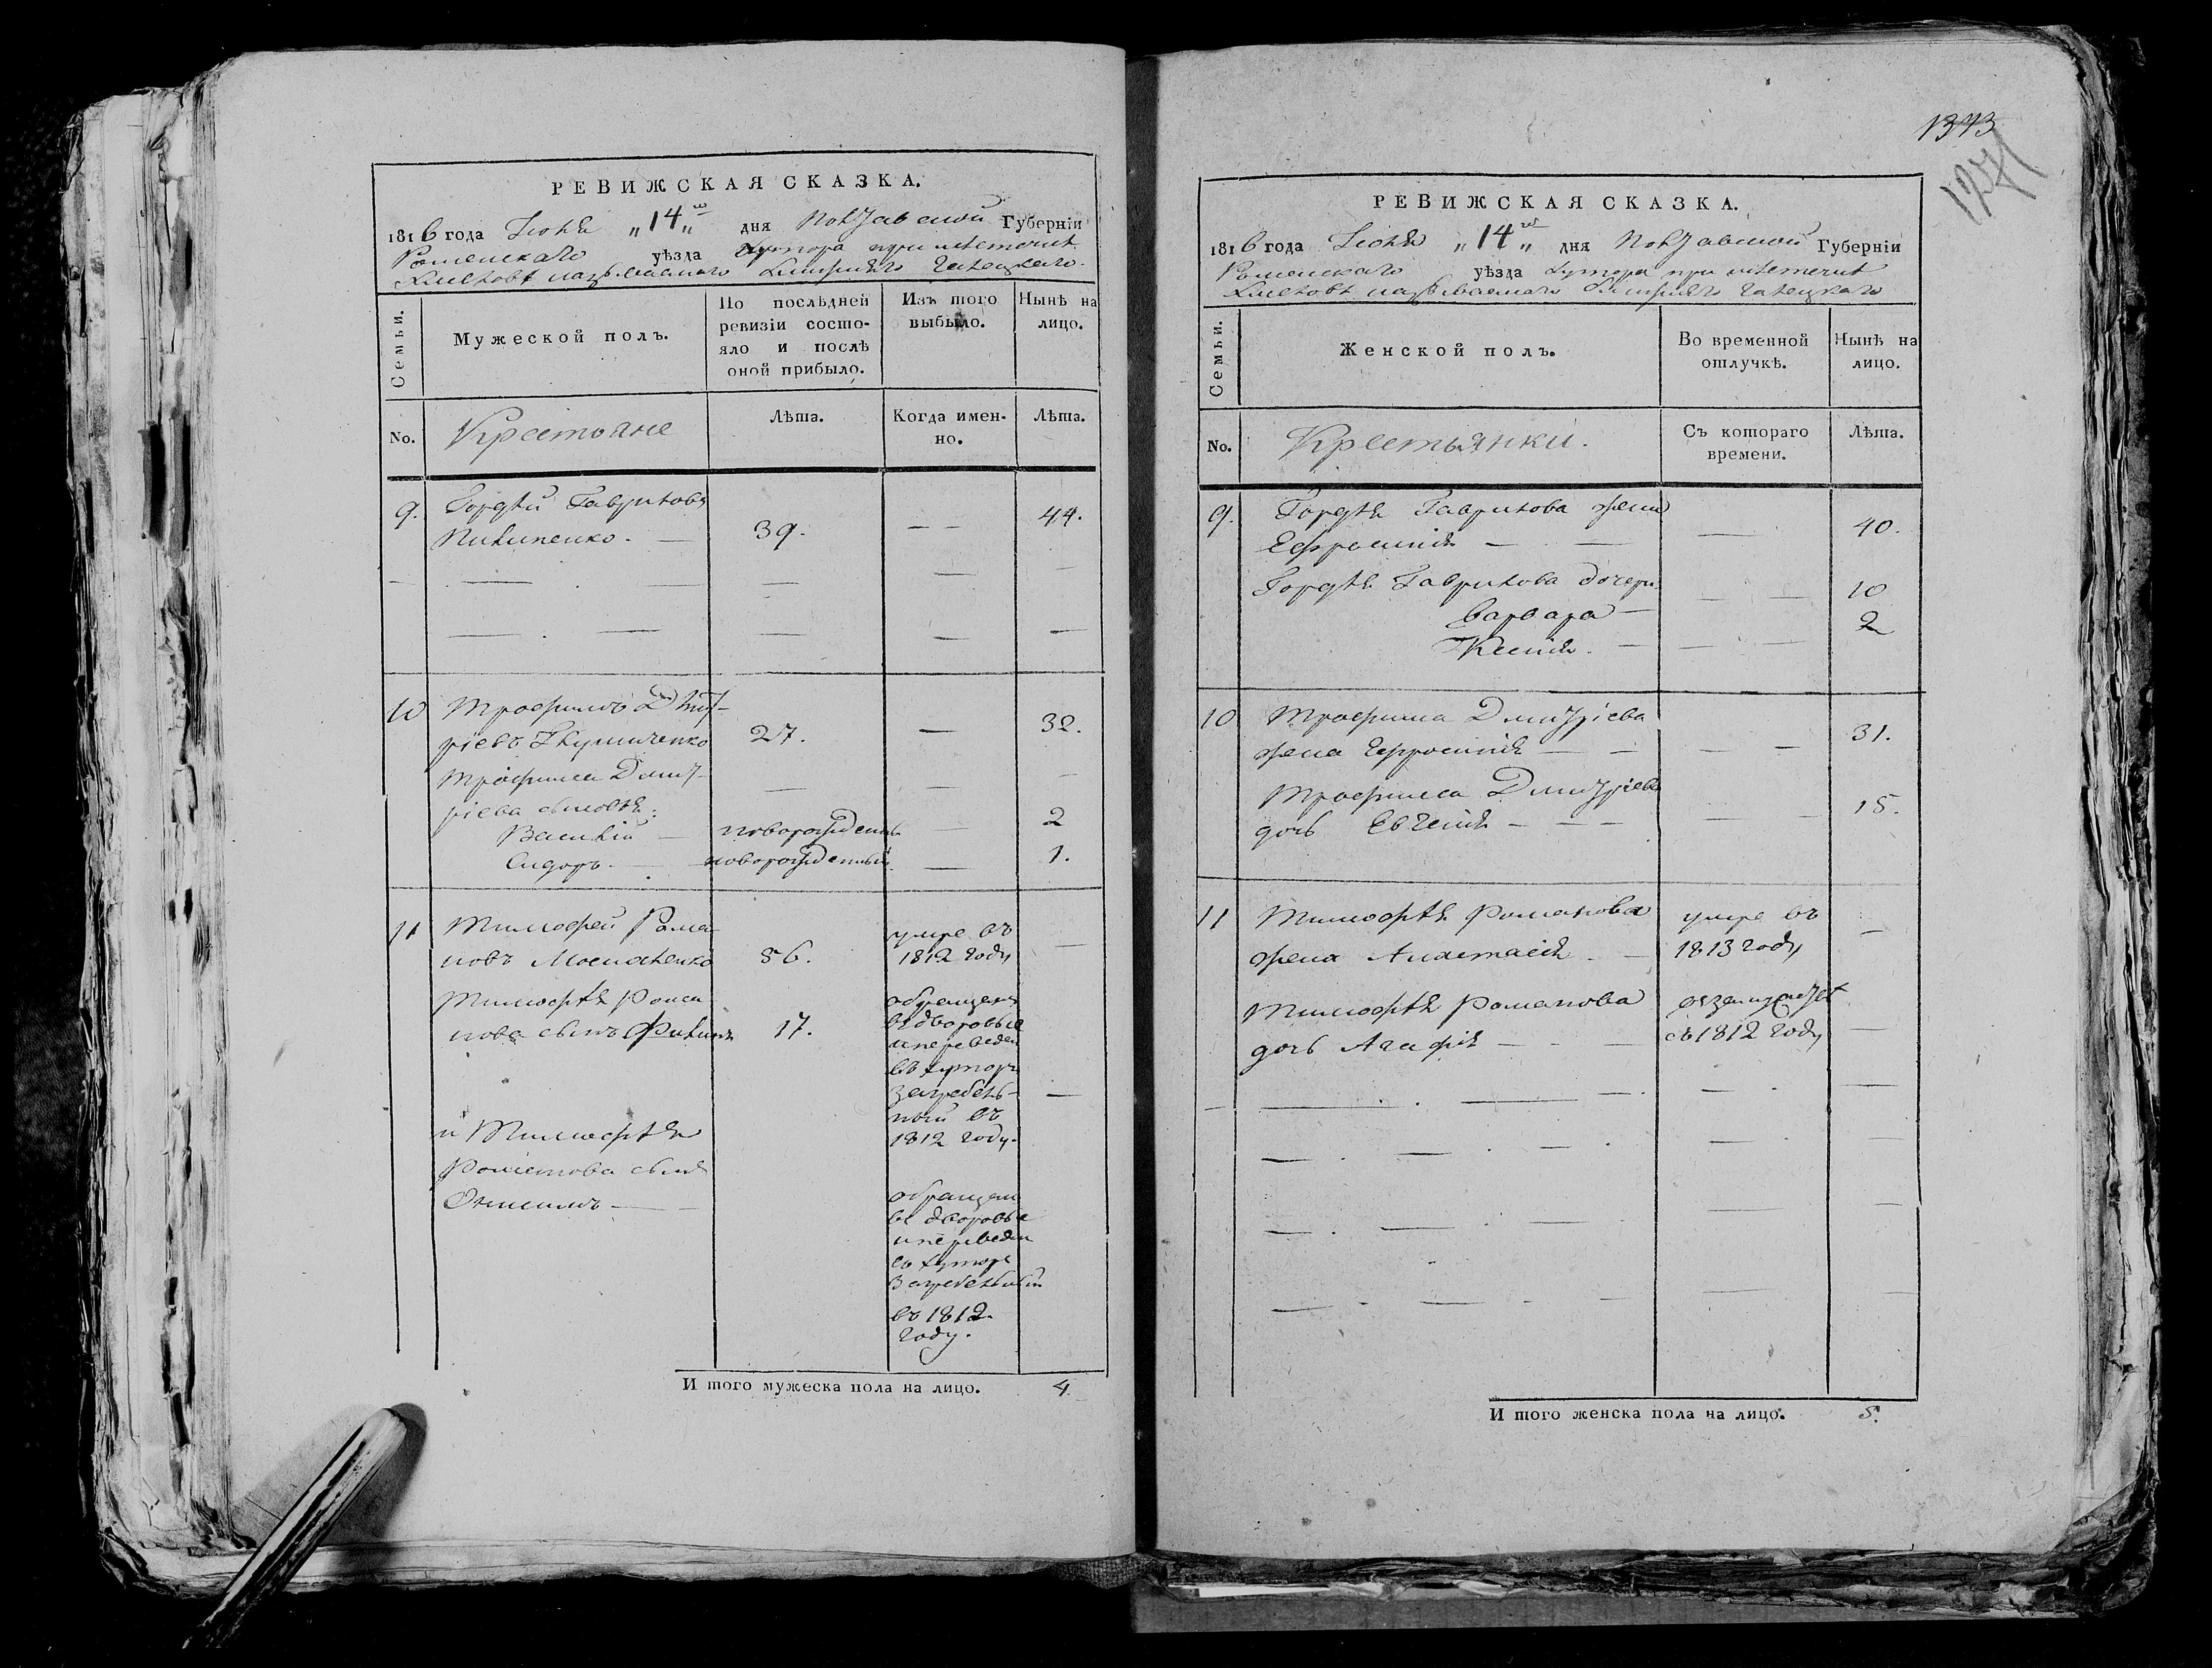 РЕВИЖСКАЯ СКАЗКА.
1816 года Іюня „14го„ дня Полтавской Губерніи
Роменскаго уѣзда хутора при мѣстечкѣ
называемаго
Семьи.
Мужеской полъ.
По послѣдней ревизіи состо-
яло и послѣ
оной прибыло.
Изъ того
выбыло.
Нынѣ на
лицо.
No.
Крестьяне
Лѣта.
Когда имен-
но.
Лѣта.
9. Гордѣй Гавриловъ 44.
39.
10 Трофимъ Дмит-
ріевъ 27. 32.
Трофима Дмит-
ріева сыновья:
Василій новорожденъ 2
Сидоръ. новорожденный 1.
11 Тимофей Рома-
новъ Москаленко 56. умре въ
1812 году
Тимофѣя Рома
нова сынъ Филипъ 17.
обращенъ
въ дворовые
и переведен
въ хуторъ
Загребель-
ный въ
1812 году.
и Тимофѣя
Романова сынъ
обращен
въ дворовые
и переведен
въ хуторъ
Загребельный
въ 1812
году.
И того мужеска пола на лицо. 4
1343
РЕВИЖСКАЯ СКАЗКА.
1816 года Іюня „14го„ дня Полтавской Губерніи
Роменскаго уѣзда хутора при мѣстечкѣ
называемаго
Семьи.
Женской полъ.
Во временной
отлучкѣ.
Нынѣ на
лицо.
No.
Крестьянки.
Съ котораго
времени.
Лѣта.
9. Гордѣя Гаврилова жена
Ефросинія 40.
Гордѣя Гаврилова дочери
Варвара 10
Ксенія. 2
10 Трофима Дмитріева
жена Ефросинія 31.
Трофима Дмитріева
дочь Евгенія 15.
11 Тимофѣя Романова умре въ
жена Анастасія 1813 году
Тимофѣя Романова въ замужествѣ
дочь Агафія съ 1812 году
И того женска пола на лицо. 5.